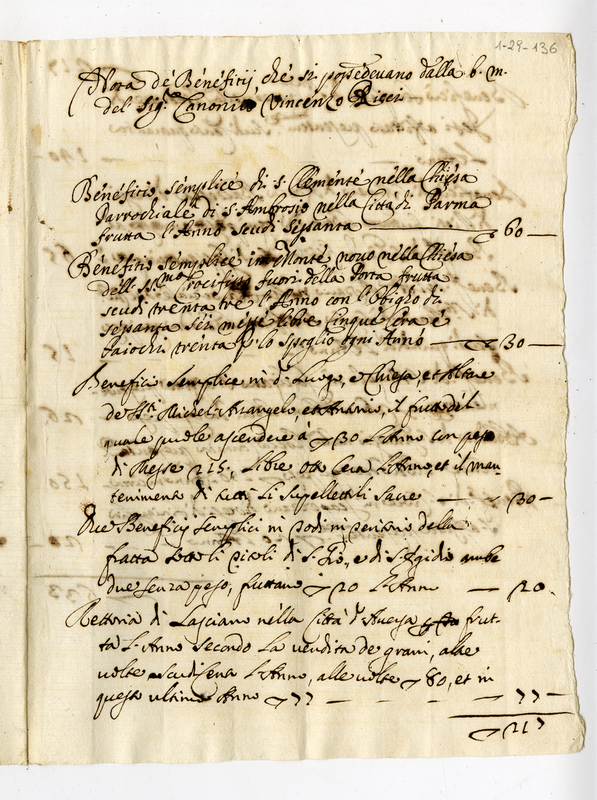 1-29-136
Nota de Benefitij, che si possedevano dalla b. m.
del Sig.re Canonico Vincenzo Ricci
Benefitio semplice di S. Clemente nella Chiesa
Parrochiale di S. Ambrosio nella Città di Parma
frutta l'Anno scudi sessanta — 60 —
Benefitio semplice in Monte novo nella Chiesa
dell SS.mo Crocifisso fuori della Porta frutta
scudi trenta tre l'Anno con l'Obligo di
sessanta sei messe libre cinque Cera e
baiochi trenta p. lo spoglio ogni Anno — 30 —
Beneficio Semplice in d.o Luogo, e Chiesa, et Altare
de S.ti Michel'Arcangelo, et Antonio, il frutto del
quale puole ascendere à 30 L'Anno con peso
di Messe 225, Libre otto Cera L'Anno, et il man-
tenimento di tutti Li Supellettili Sacre — 30 —
Due Beneficij semplici in
fratta sotto li titoli di S. Gio, e di S. Egidio
due senza peso, fruttano 20 L'Anno — 20.
Rettoria di Lasciano nella Città d' Aversa frut-
ta L'Anno secondo La vendita de grani, alle
volte scudi L'Anno, alle volte 80, et in
questo ultimo Anno 77 — 77 —
217